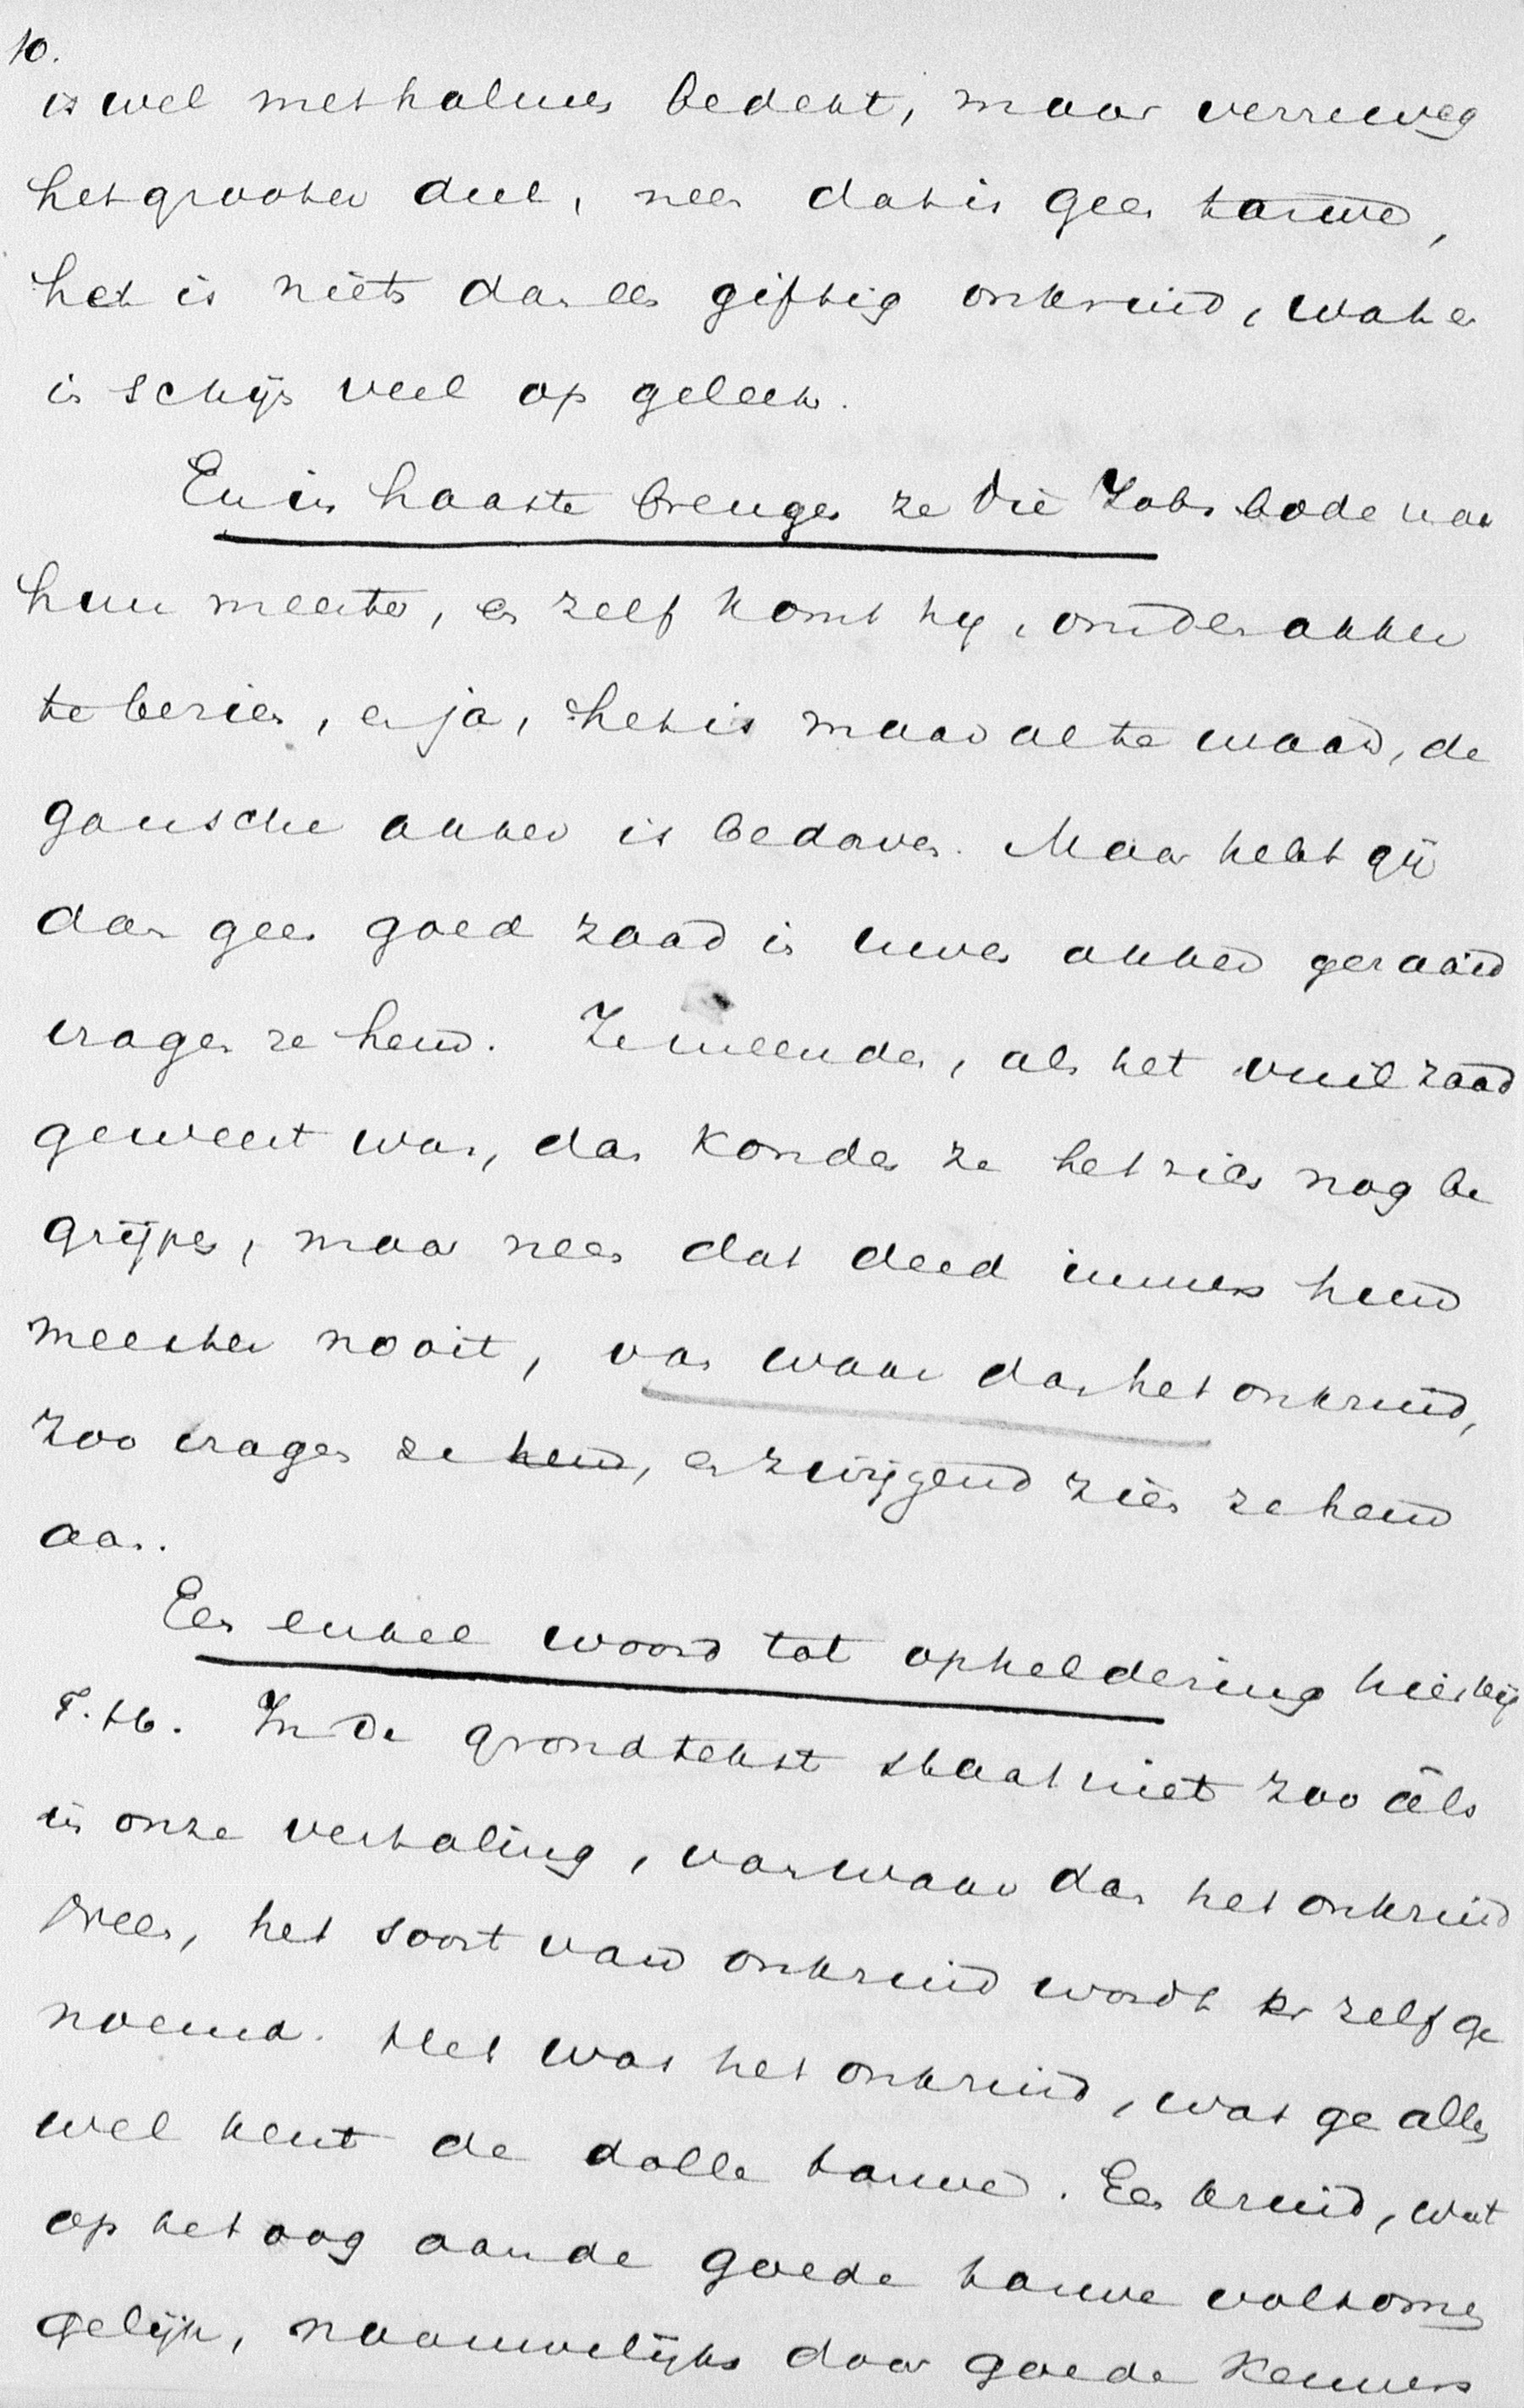 10.
is wel met halmen bedekt, maar verreweg
het grooter deel, neen dat is geen tarwe,
het is niets dan een giftig onkruid, wat er
in schijn veel op geleek.
En in haaste brengen ze die Jobsbode naar
hun meester, en zelf komt hij, om den akker
te bezien, en ja, het is maar al te waar, de
gansche akker is bedorven. Maar hebt gij
dan geen goed zaad in uwen akker gezaaid
vragen ze hem. Ze meenden, als het vuil zaad
geweest was, dan konden ze het zien nog be
grijpen, maar neen dat deed immers hun
meester nooit, van waar dan het onkruid,
zoo vragen ze hem, en zwijgend zien ze hem
aan.
Een enkel woord tot opheldering hierbij
T. H. In de grondtekst staat niet zoo als
in onze vertaling, van waar dan het onkruid
Neen, het soort van onkruid wordt er zelf ge
noemd. Het was het onkruid, wat ge allen
wel kent de dolle tarwe. Een kruid, wat
op het oog aan de goede tarwe volkomen
gelijk, nauwelijks door goede kenners